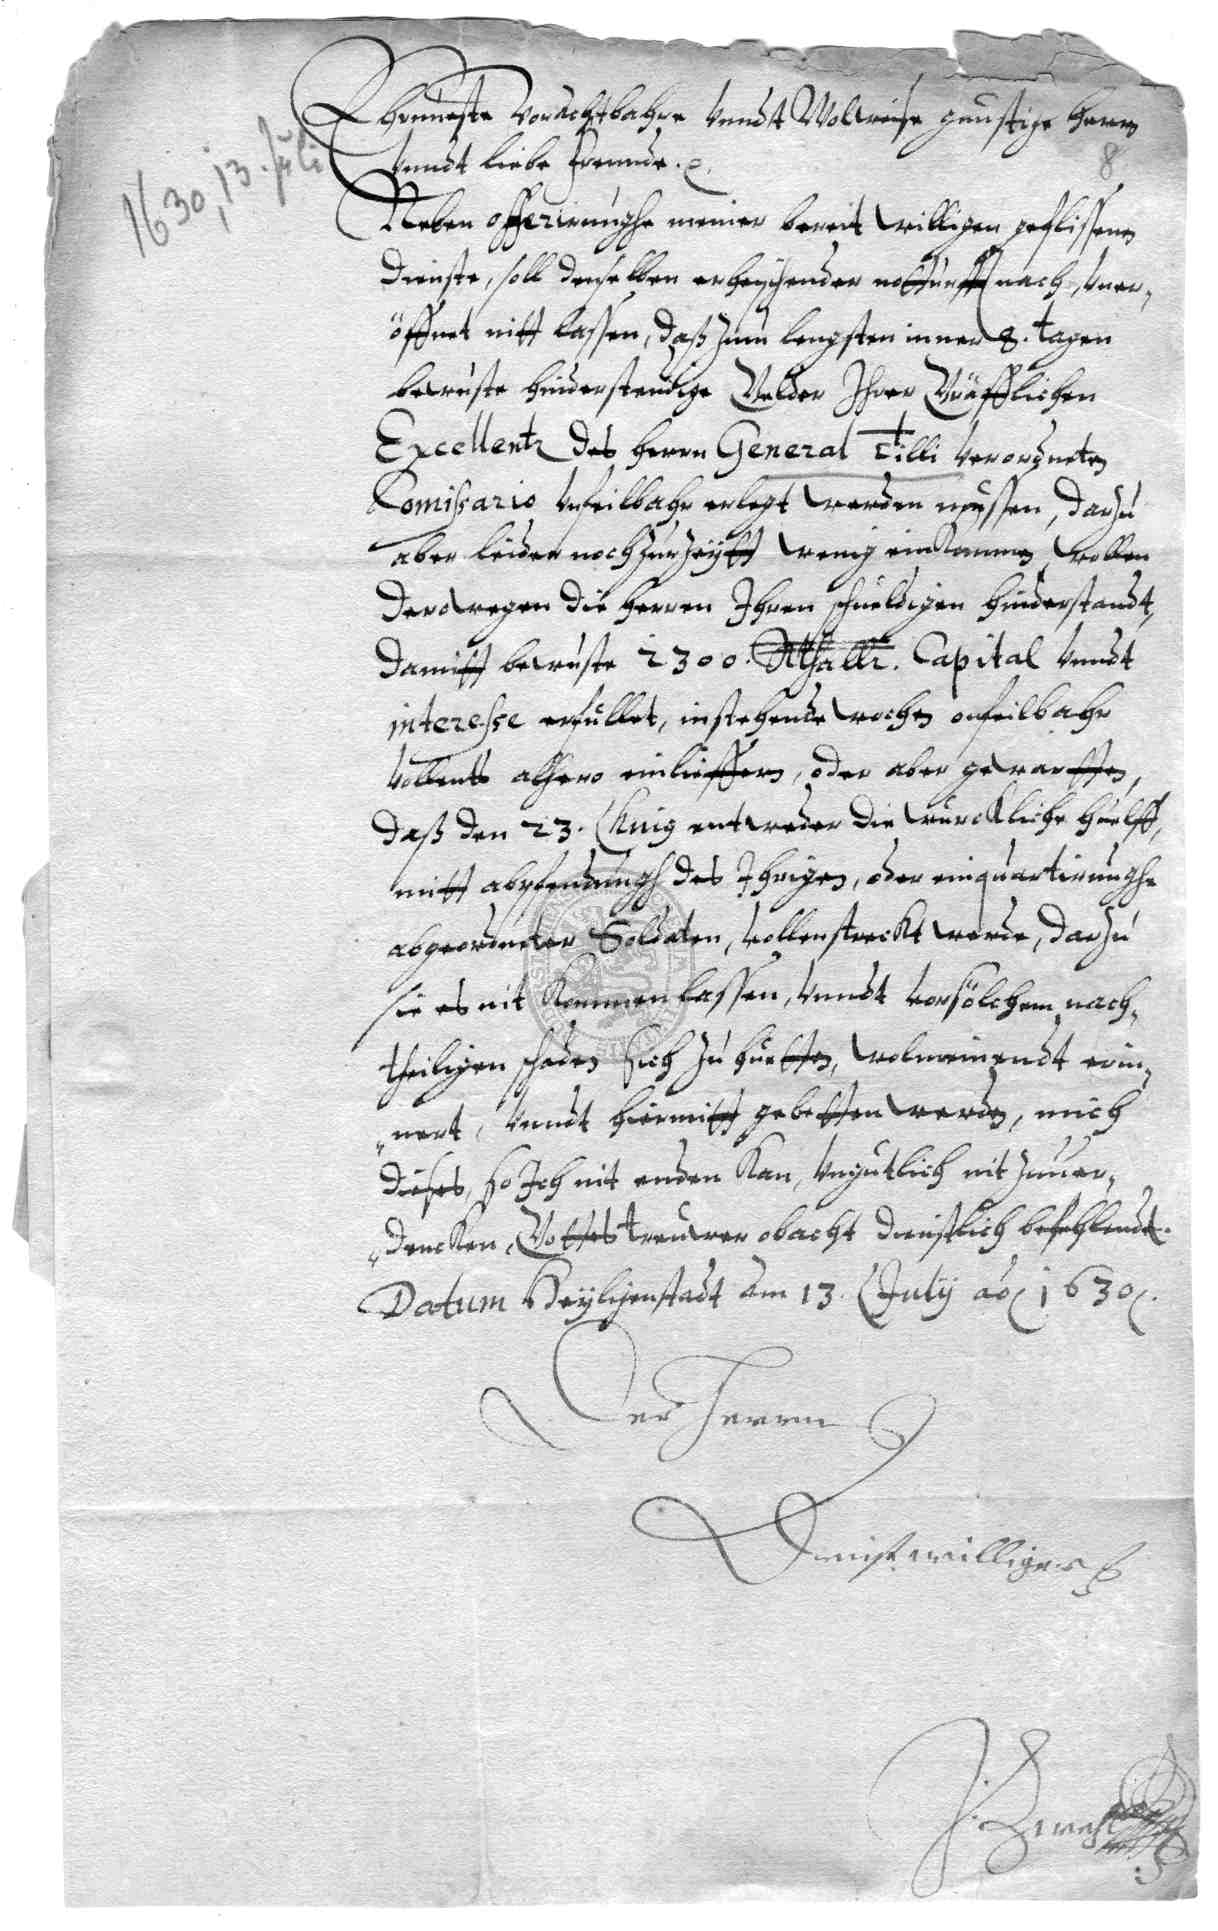 1630, 13. Juli
8
Ehrnueste Vorachtbahre Vnndt Wolweise gunstige Herrn
Vnndt liebe freunde. p.
Neben offerirunghe meiner bereit willigen geflissenen
Dienste, soll denselben erheischender notturfft nach, Vner,,
öffnet nitt lassen, daß zum lengsten inner 8. tagen
bewuste hinderstendige Gelder Ihrer Gräfflichen
Excellentz des Herrn General Tilli Verordneten
Comissario Vnfeilbahr erlegt werden mussen, darzu
aber leider noch zur zeytt wenig einkommen, wollen
derowegen die Herren Ihren schueldigen hinderstandt,
damitt bewuste 2300. Rthallr. Capital Vnndt
interesse erfullet, instehende wochen onfeilbahr
Vollents alhero einlieffern, oder aber gewartten,
daß den 23. huig entweder die wurckliche huelff,
mitt abpfendungh des Ihrigen, oder einquartirunghe
abgeordneter Soldaten, Vollenstreckt werde, darzu
sie es nit kommen lassen, Vnndt vor solchem nach,,
theiligen schaden sich zu huetten, wolmeinendt erin,,
nert, Vnndt hiermitt gebetten werden, mich
dieses, so Ich nit enden kan, Vngutlich nit zuuer,,
dencken, Gottes trewer obacht dienstlich befehlendt.
Datum Heyligenstadt am 13. July ao 1630.
Der Herrn
Dienstwilliger